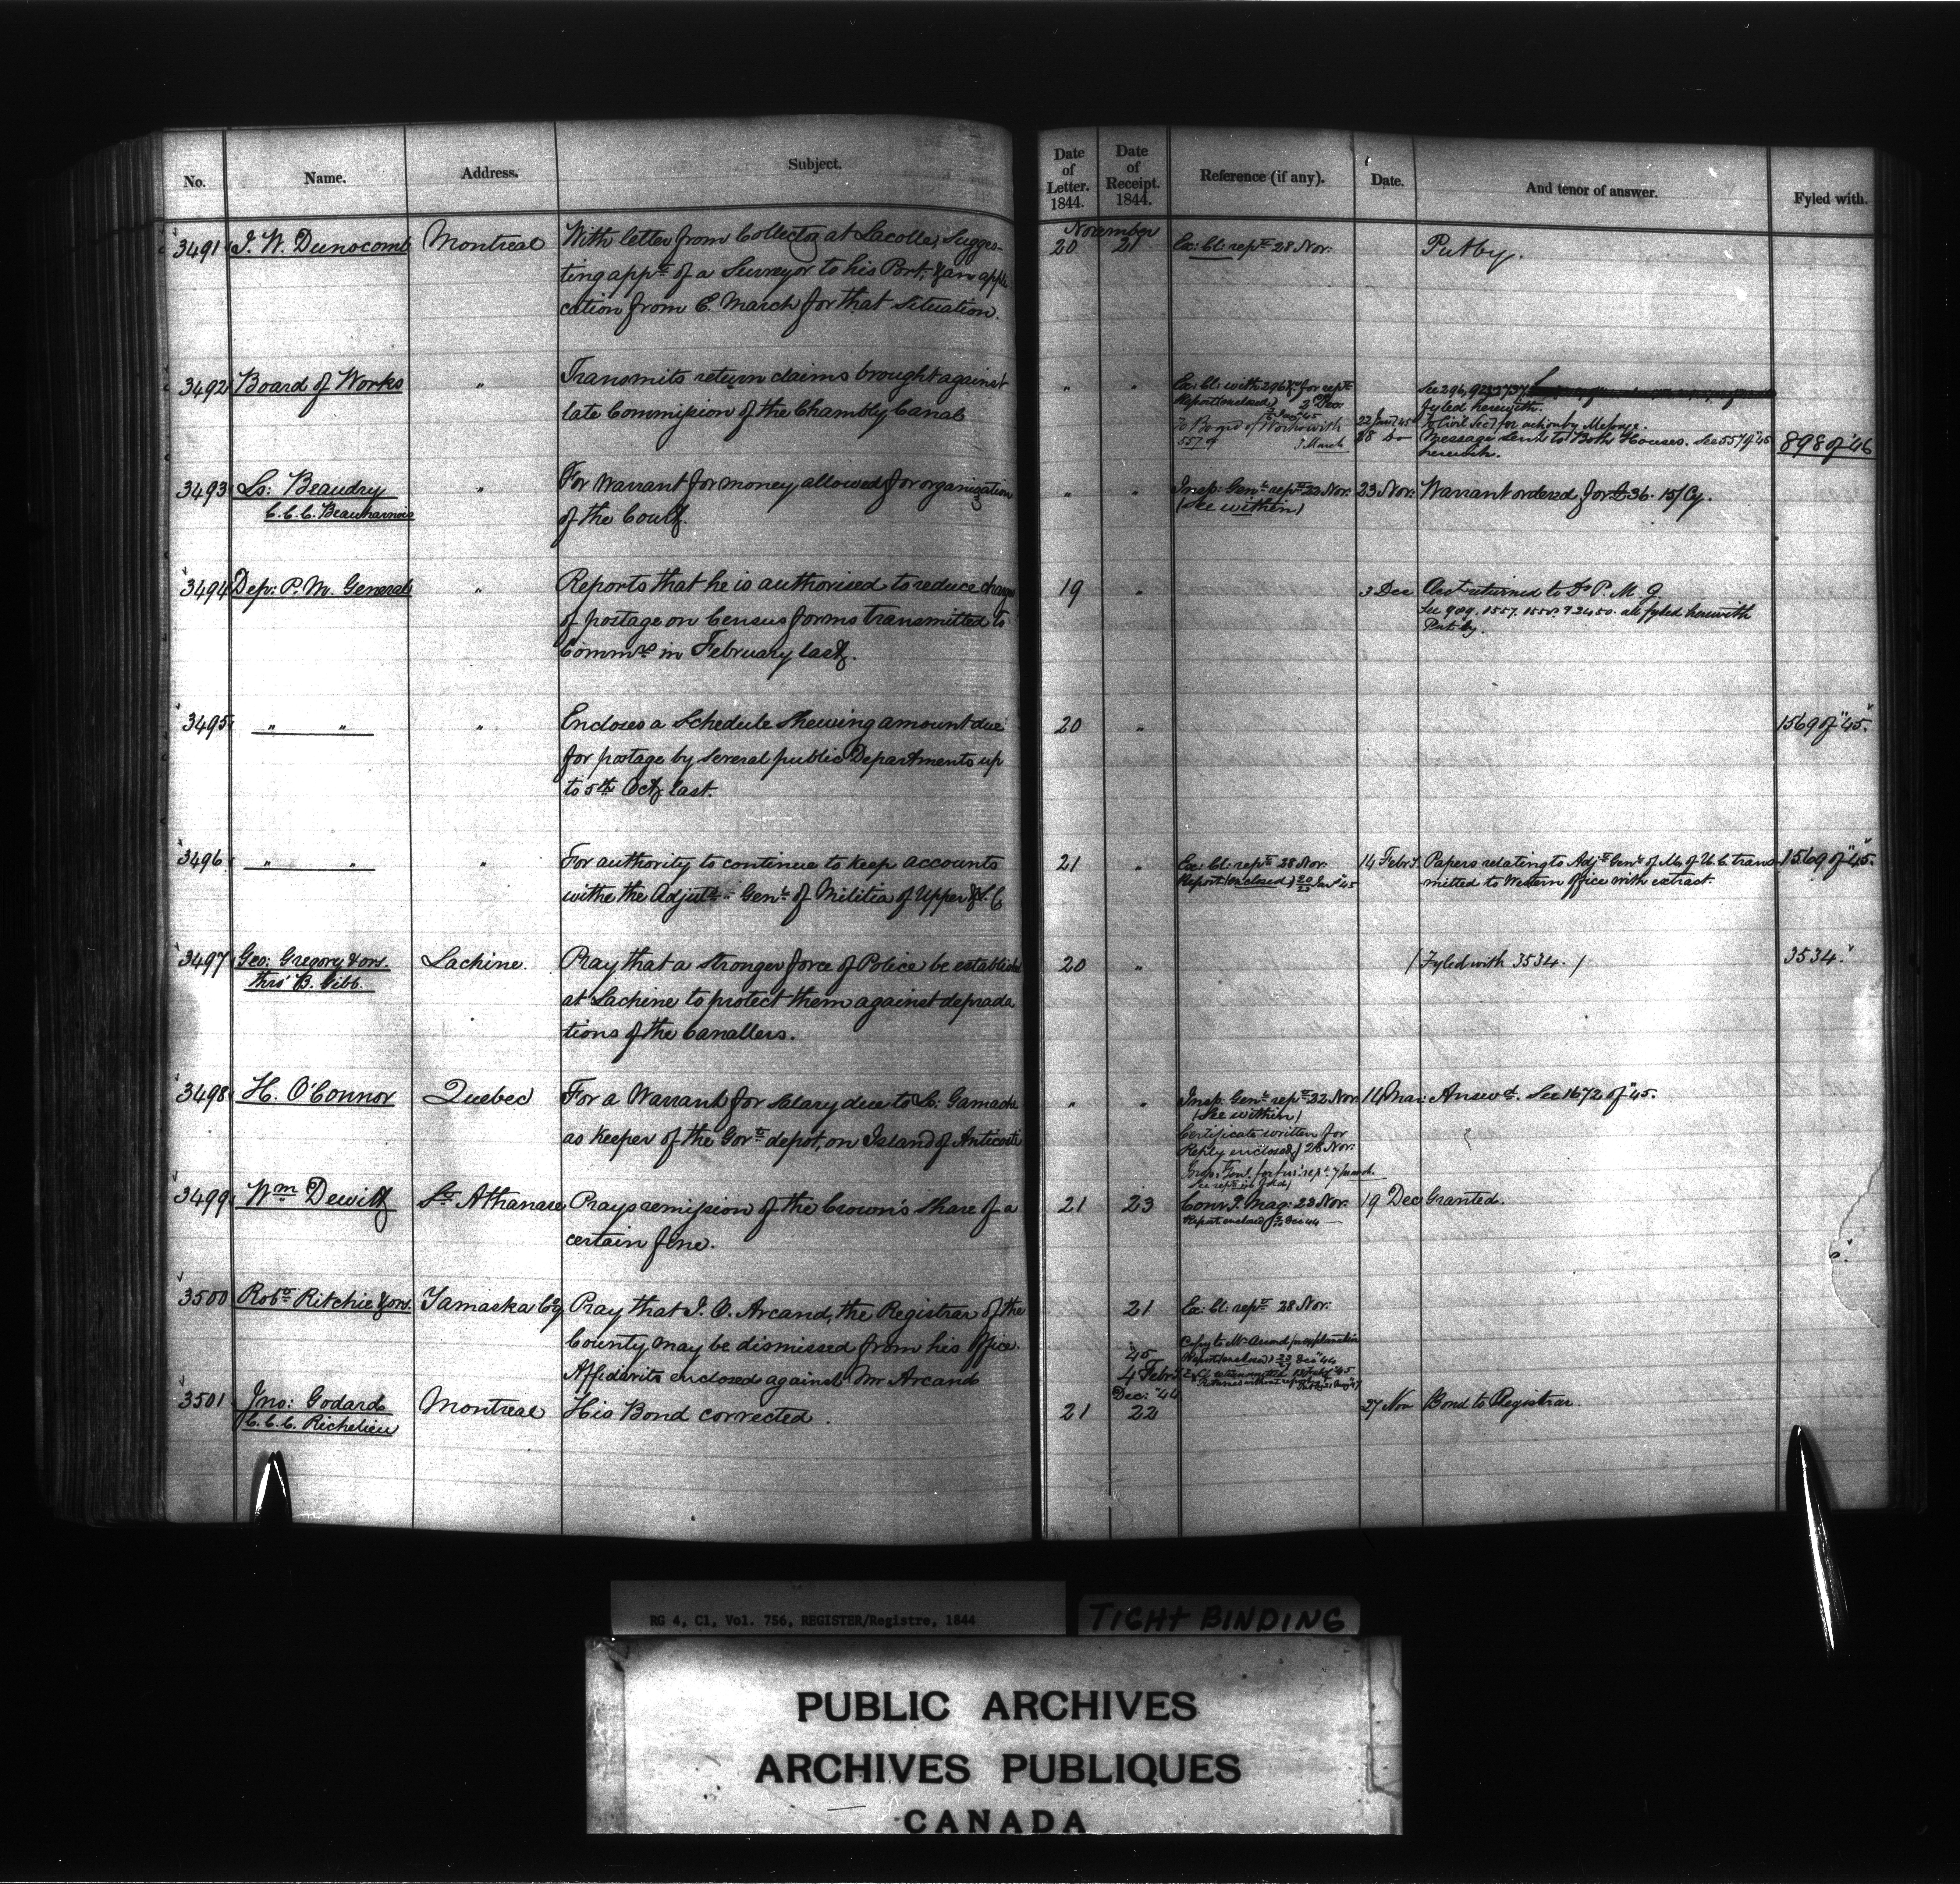 No. Name. Address. Subject. Date of Letter. 1844. Date of Receipt. 1844. Reference (if any). Date. And tenor of answer. Fyled with.
November
3491 J. W. Dunscomb Montreal With letter from Collector at Lacolle, Sugges- 20 21 Ex: Cl: rept 28 Nov: Put by.
ting appt of a Surveyor to his Port, & an appli
cation from C. March for that situation.
3492 Board of Works " Transmits return claims brought against " " Ex: Cl: with 296 for rept See 296,
late Commission of the Chambly Canal
Report (enclosed) 2 Dec: fyled herewith.
To Board of Works with 22 Jany 45 To Civil Secy for action by Message.
557 of 7 March 28 do Message sent to Both Houses. See 557 of "45 898 of '46
herewith.
3493 Ls: Beaudry " For Warrant for money allowed for organization " " Insp: Genl rept 22 Nov: 23 Nov: Warrant ordered for £36.15/ Cy.
C.C.C. Beauharnois of the Court. (See within)
3494 Dep: P. M. General " Reports that he is authorised to reduce charge 19 " 3 Dec Act returned to D. P. M. G.
of postage on Census forms transmitted to See 909. 1557. 1558. & 2450. all fyled herewith
Commrs in February last. Put by.
3495 " " " Encloses a Schedule shewing amount due 20 " 1569 of "45."
for postage by several public Departments up
to 5th Oct: last.
3496 " " " For authority to continue to keep accounts 21 " Ex: Cl: rept 28 Nov: 14 Feby. Papers relating to Adjt Genl of M. of U.C. trans- 1569 of "45."
withe the Adjutt Genl of Militia of Upper & L.C Report (enclosed) 20/23 Jany 45 mitted to Western Office with extract.
3497 Geo: Gregory & ors. Lachine. Pray that a stronger force of Police be established 20 " (Fyled with 3534.) 3534.
thro' B. Gibb. at Lachine to protect them against deprada
tions of the Canallers.
3498 H. O'Connor Quebec For a Warrant for salary due to L: Gamache " " Insp: Genl rept 22 Nov: 14 Mar: Answd. See 1672 of "45.
as keeper of the Govt depot, on Island of Anticosti (See within)
Certificate written for
Reply enclosed) 28 Nov:
Insp: Genl. for fur: rept 7 March
3499 Wm Dewitt St Athanase Prays remission of the Crown's share of a 21 23 Conv. J. Mag: 23 Nov: 19 Dec Granted.
certain fine. Report enclosed Dec 44
3500 Robt Ritchie & ors. Yamaska Coy Pray that J. O. Arcand, the Registrar of the 21 Ex: Cl: rept 28 Nov:
County may be dismissed from his Office. Copy to Mr Arcand for explanation
Affidavits enclosed against Mr Arcand 45 Report (enclosed) Dec 44
4 Feby
Dec: "44
3501 Jno: Godard Montreal His Bond corrected. 21 22 27 Nov Bond to Registrar.
C.C.C. Richelieu
RG 4, C1, Vol. 756, REGISTER/Registre, 1844
TIGHT BINDING
PUBLIC ARCHIVES
ARCHIVES PUBLIQUES
CANADA